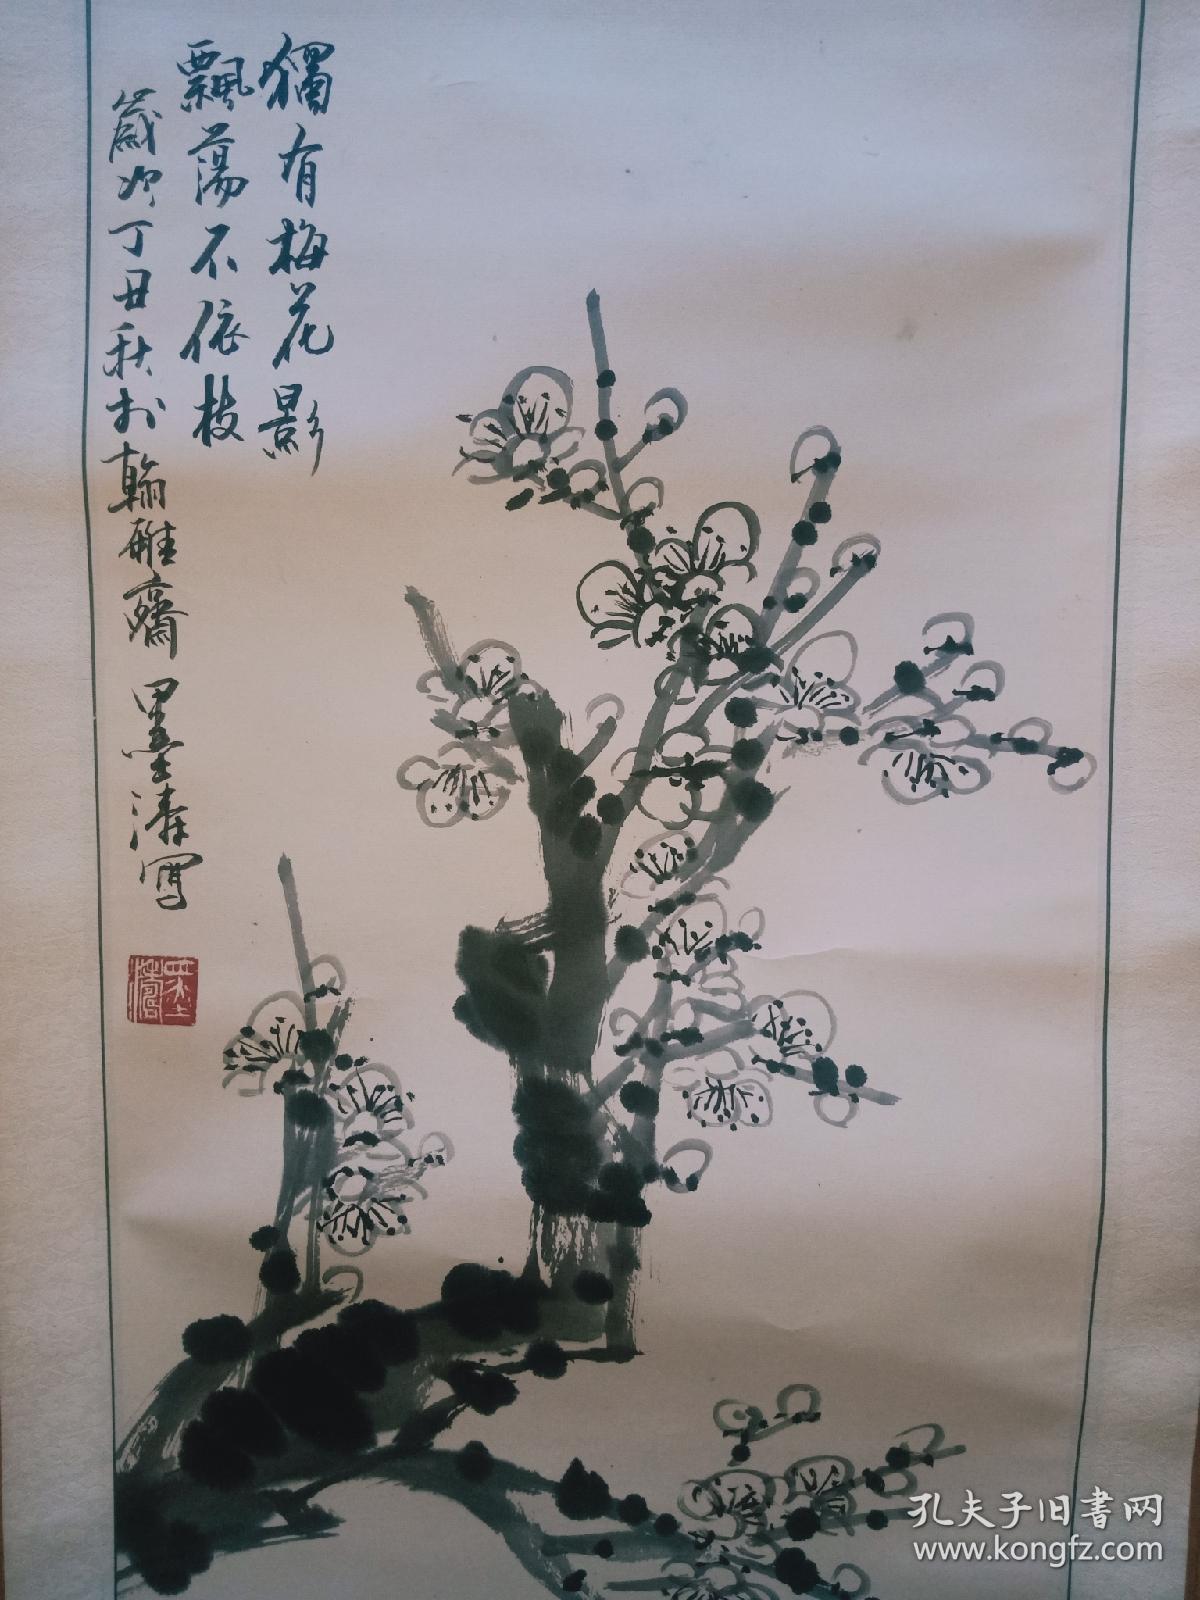 獨有梅花影
飄蕩不依枝
歲次丁丑秋於翰雅齋 墨濤寫
墨濤
孔夫子旧書网
www.kongfz.com